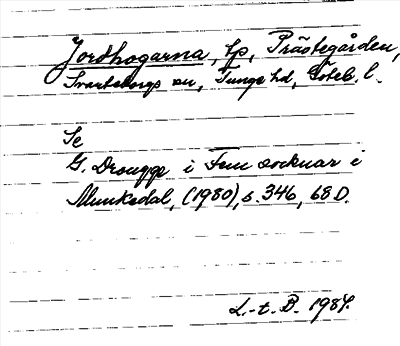 Jordhogarna, lp, Prästegården,
Svarteborgs sn, Tunge hd, Göteb. l.
Se
G. Drougge i Fem socknar i
Munkedal, (1980), s. 346, 68 D.
L.-t. B. 1984.